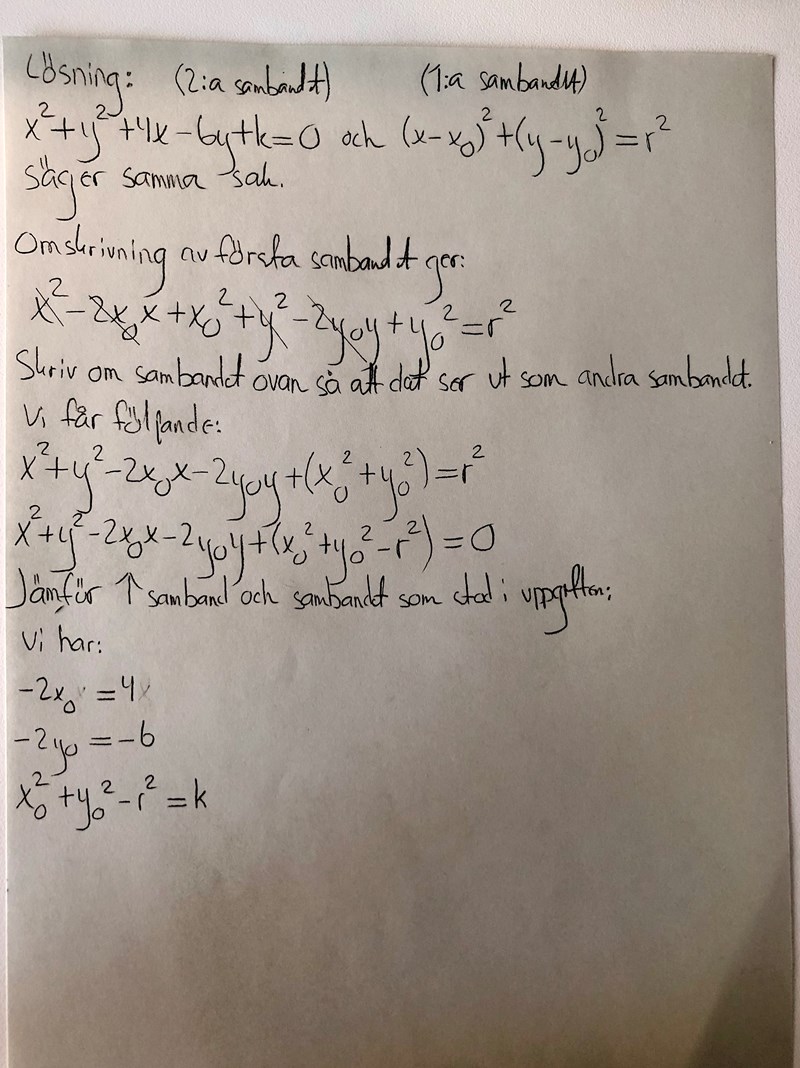 Lösning: (2:a sambandt) (1:a sambandt)
x²+y²+4x-6y+k=0 och (x-x₀)²+(y-y₀)²=r²
säger samma sak.
Omskrivning av första sambandt ger:
x²-2x₀x+x₀²+y²-2y₀y+y₀²=r²
Skriv om sambandet ovan så att det ser ut som andra sambandet.
Vi får följande:
x²+y²-2x₀x-2y₀y+(x₀²+y₀²)=r²
x²+y²-2x₀x-2y₀y+(x₀²+y₀²-r²)=0
Jämför ↑ samband och sambandet som stod i uppgiften:
Vi har:
-2x₀ =4
-2y₀=-6
x₀²+y₀²-r²=k